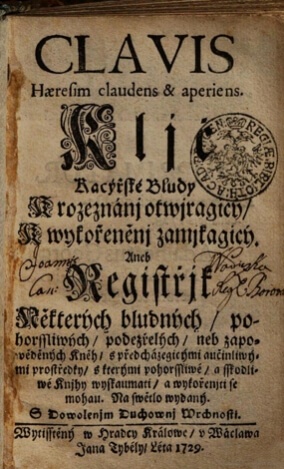 CLAVIS
Hæresim claudens & aperiens.
Kljč
Kacýřské Bludy
K rozeznánj otwjragjcý/
K wykořeněnj zamjkagjcý.
Aneb
Joannes
Registřjk
Některých bludných/ po-
horssliwých/ podezřelých/ neb zapo-
wěděných Kněh/ s předcházegicými aučinliwý-
mi prostředky/ s kterými pohorssliwé/ a sskodli-
wé Knjhy wyskaumati/ a wykořeniti se
mohau. Na swětlo wydaný.
S Dowolenjm Duchownj Wrchnosti.
Wytisstěný w Hradcy Králowe/ v Wáclawa
Jana Tybély/ Léta 1729.